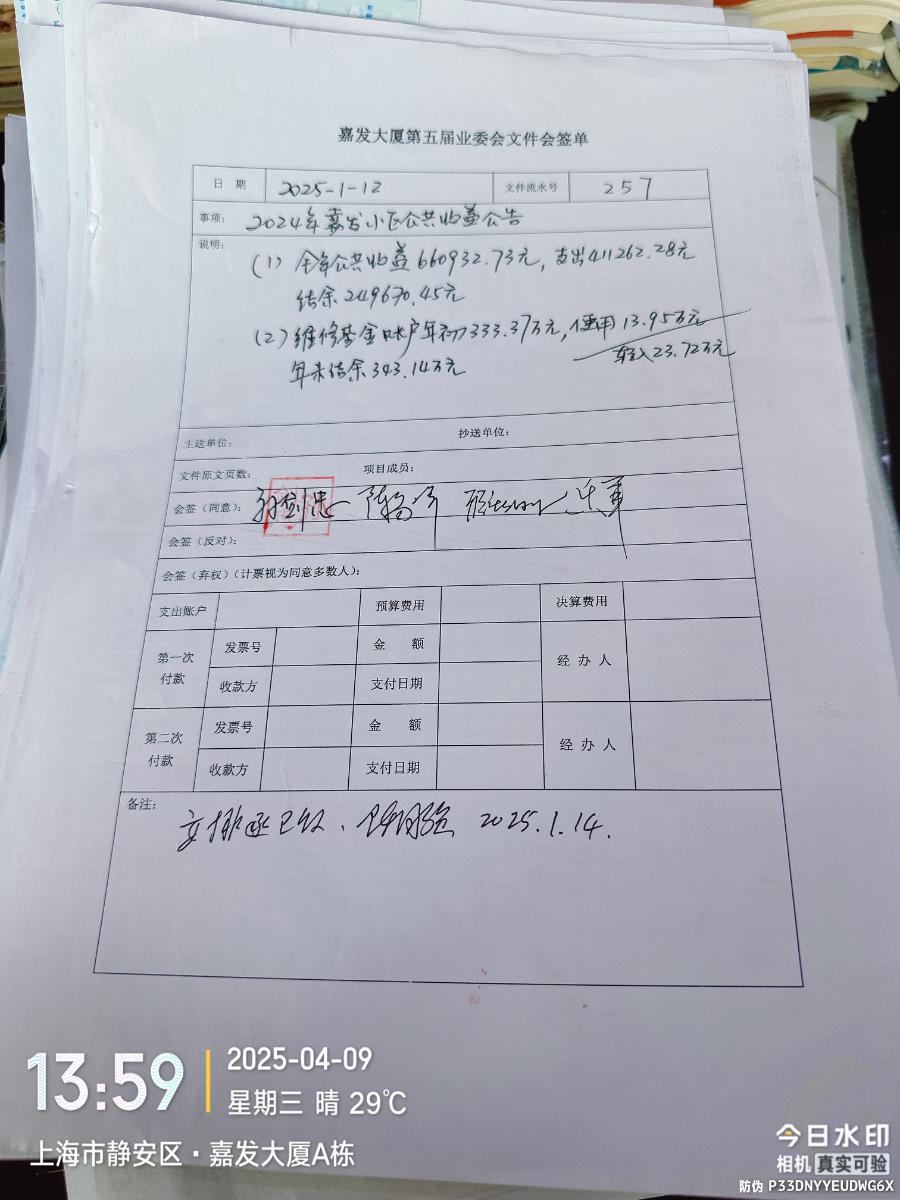 嘉发大厦第五届业委会文件会签单
日 期 2025-1-12 文件流水号 257
事项: 2024年嘉发小区公共收益公告
说明:
(1) 全年公共收益660932.73元,支出411262.28元
结余249670.45元
(2) 维修基金账户年初333.37万元,使用13.95万元
转入23.72万元
年末结余343.14万元
主送单位: 抄送单位:
文件原文页数: 项目成员:
会签(同意): 孙剑忠
会签(反对):
会签(弃权)(计票视为同意多数人):
支出账户 预算费用 决算费用
第一次付款 发票号 金 额 经 办 人
收款方 支付日期
第二次付款 发票号 金 额 经 办 人
收款方 支付日期
备注:
2025.1.14.
13:59
2025-04-09
星期三 晴 29℃
上海市静安区·嘉发大厦A栋
今日水印
相机 真实可验
防伪 P33DNYYEUDWG6X